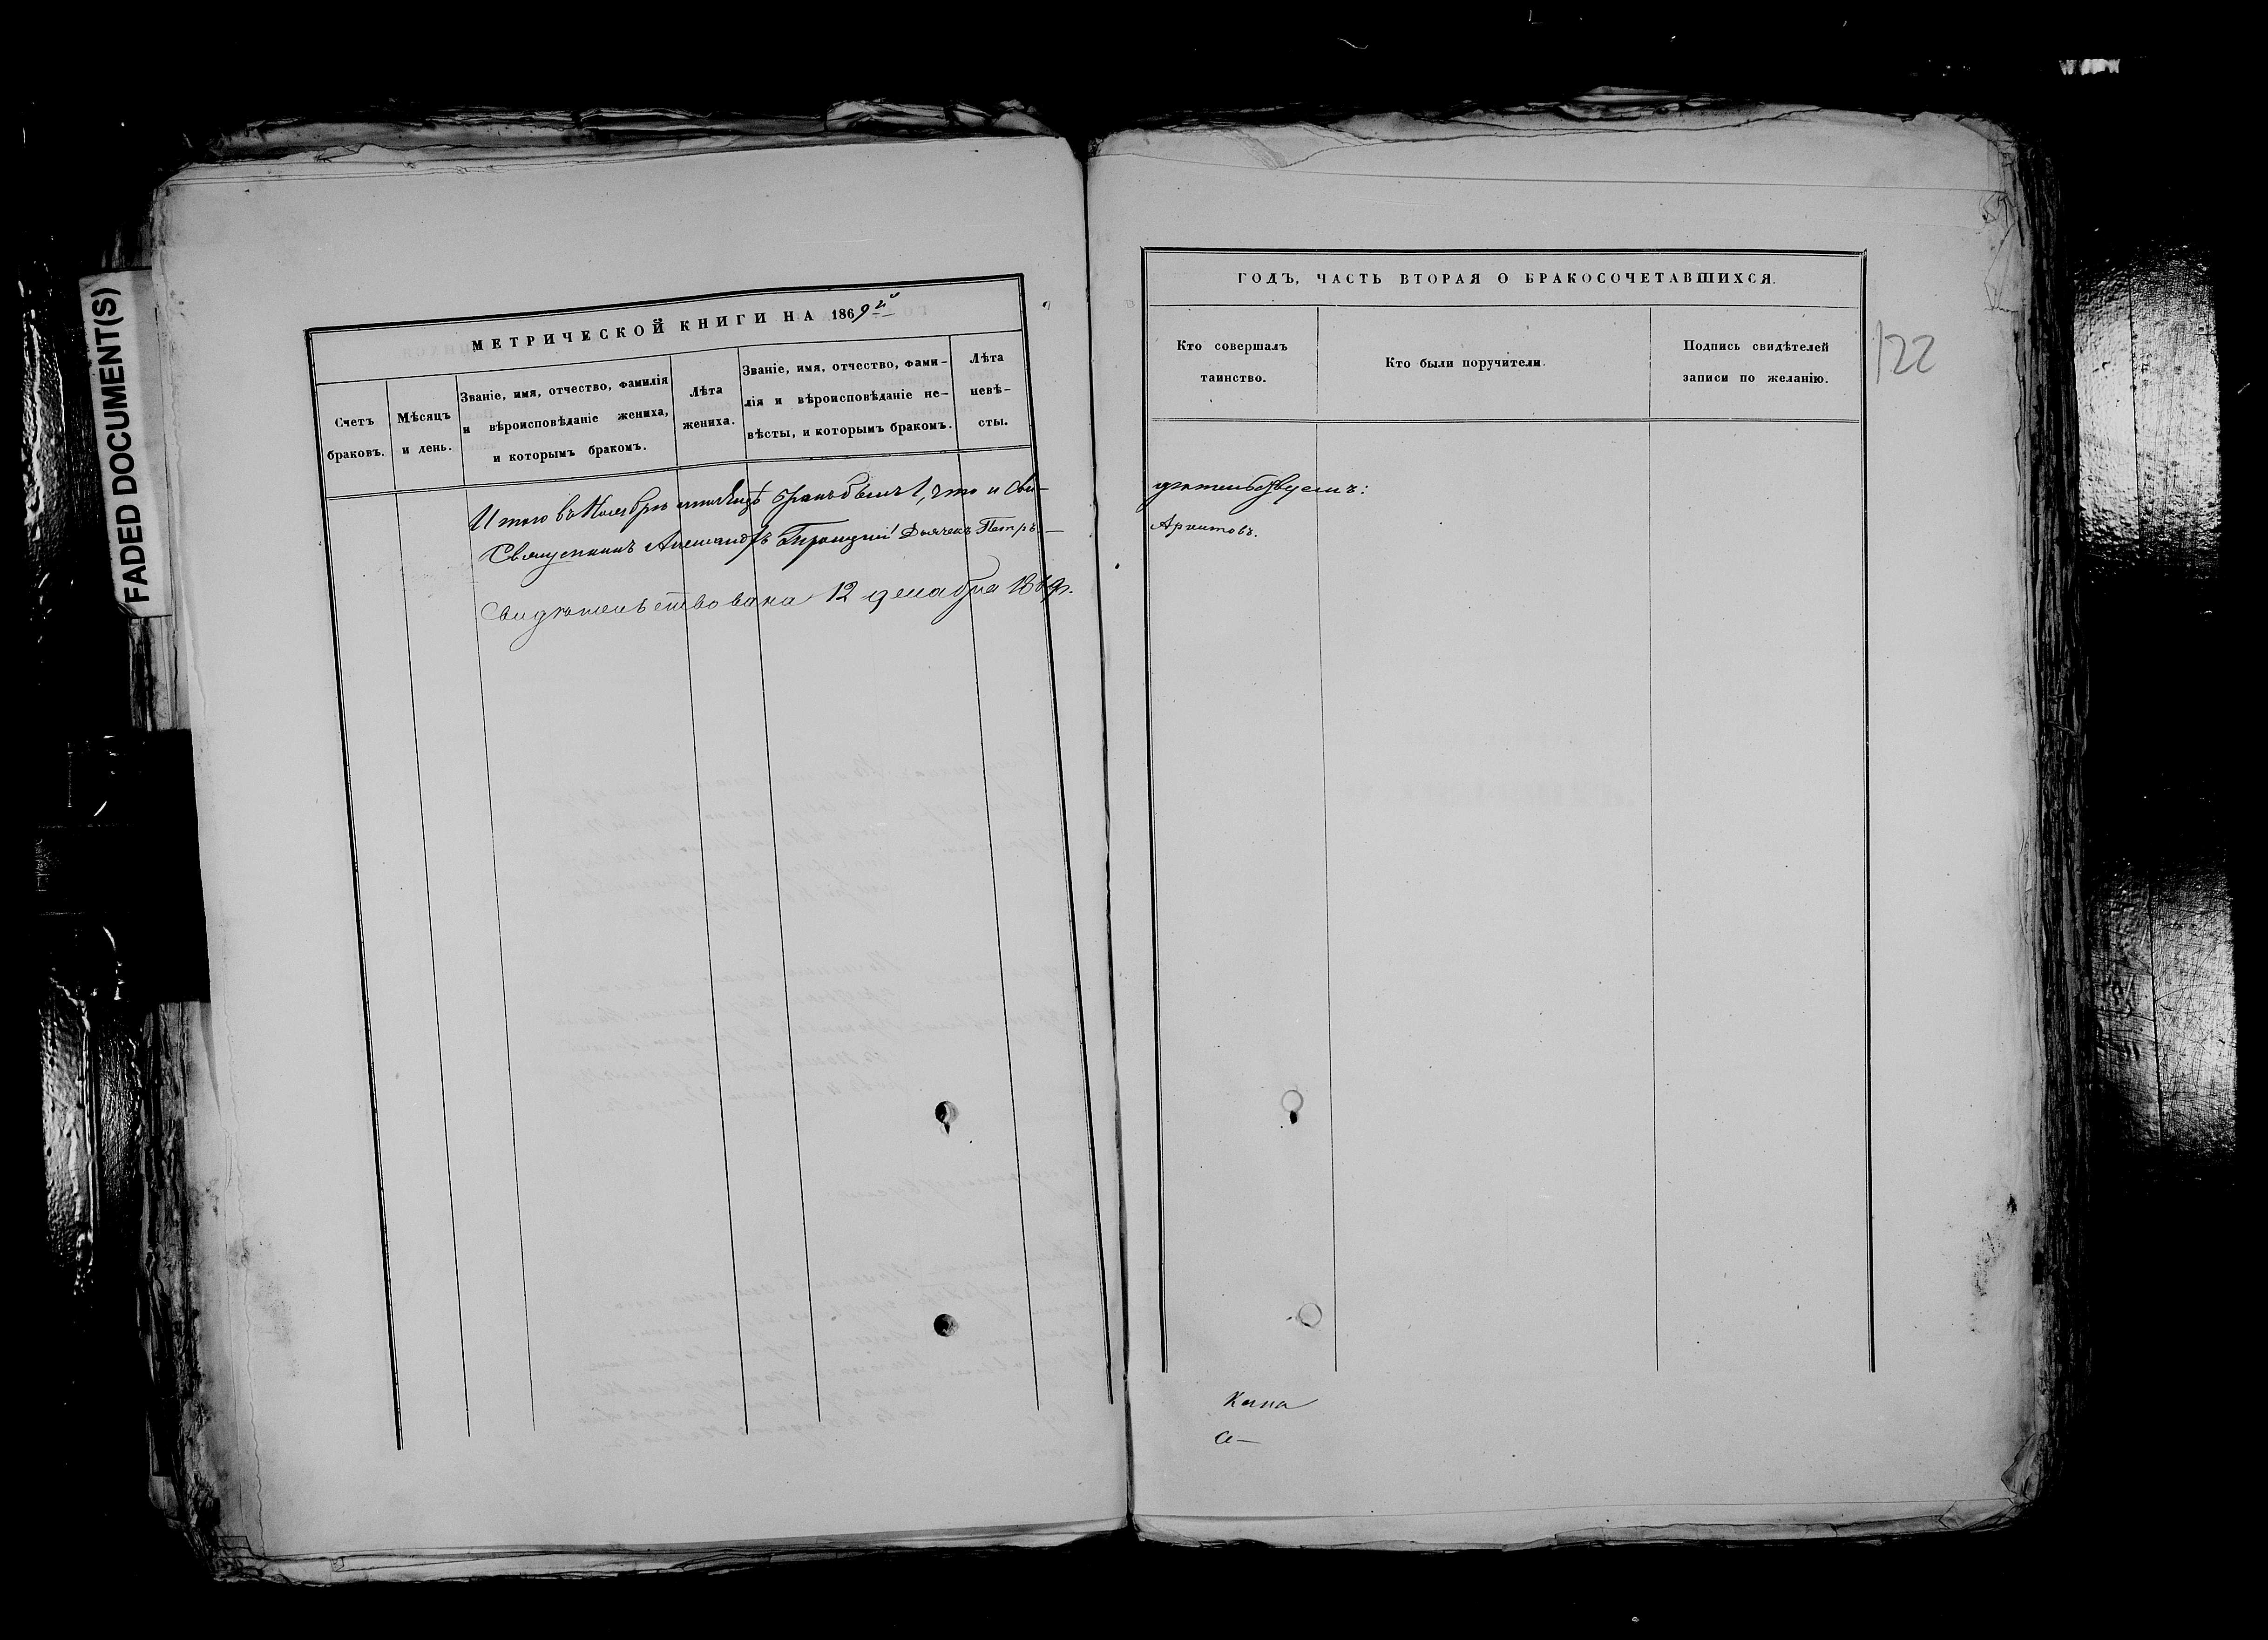 FADED DOCUMENT(S)
МЕТРИЧЕСКОЙ КНИГИ НА 1869й
Счетъ браковъ.
Мѣсяцъ и день.
Званіе, имя, отчество, фамилія
и вѣроисповѣданіе жениха,
и которымъ бракомъ.
Лѣта жениха.
Званіе, имя, отчество, фами-
лія и вѣроисповѣданіе не-
вѣсты, и которымъ бракомъ.
Лѣта невѣ-
сты.
Итого въ Ноябрѣ мѣсяцѣ бракъ былъ 1, что и сви-
Священникъ Александръ Троицкій Дьячекъ Петръ
Свидѣтельствована 12 декабря 1869г.
ГОДЪ, ЧАСТЬ ВТОРАЯ О БРАКОСОЧЕТАВШИХСЯ.
122
Кто совершалъ
таинство.
Кто были поручители.
Подпись свидѣтелей
записи по желанію.
дѣтельствуемъ:
Архитовъ.